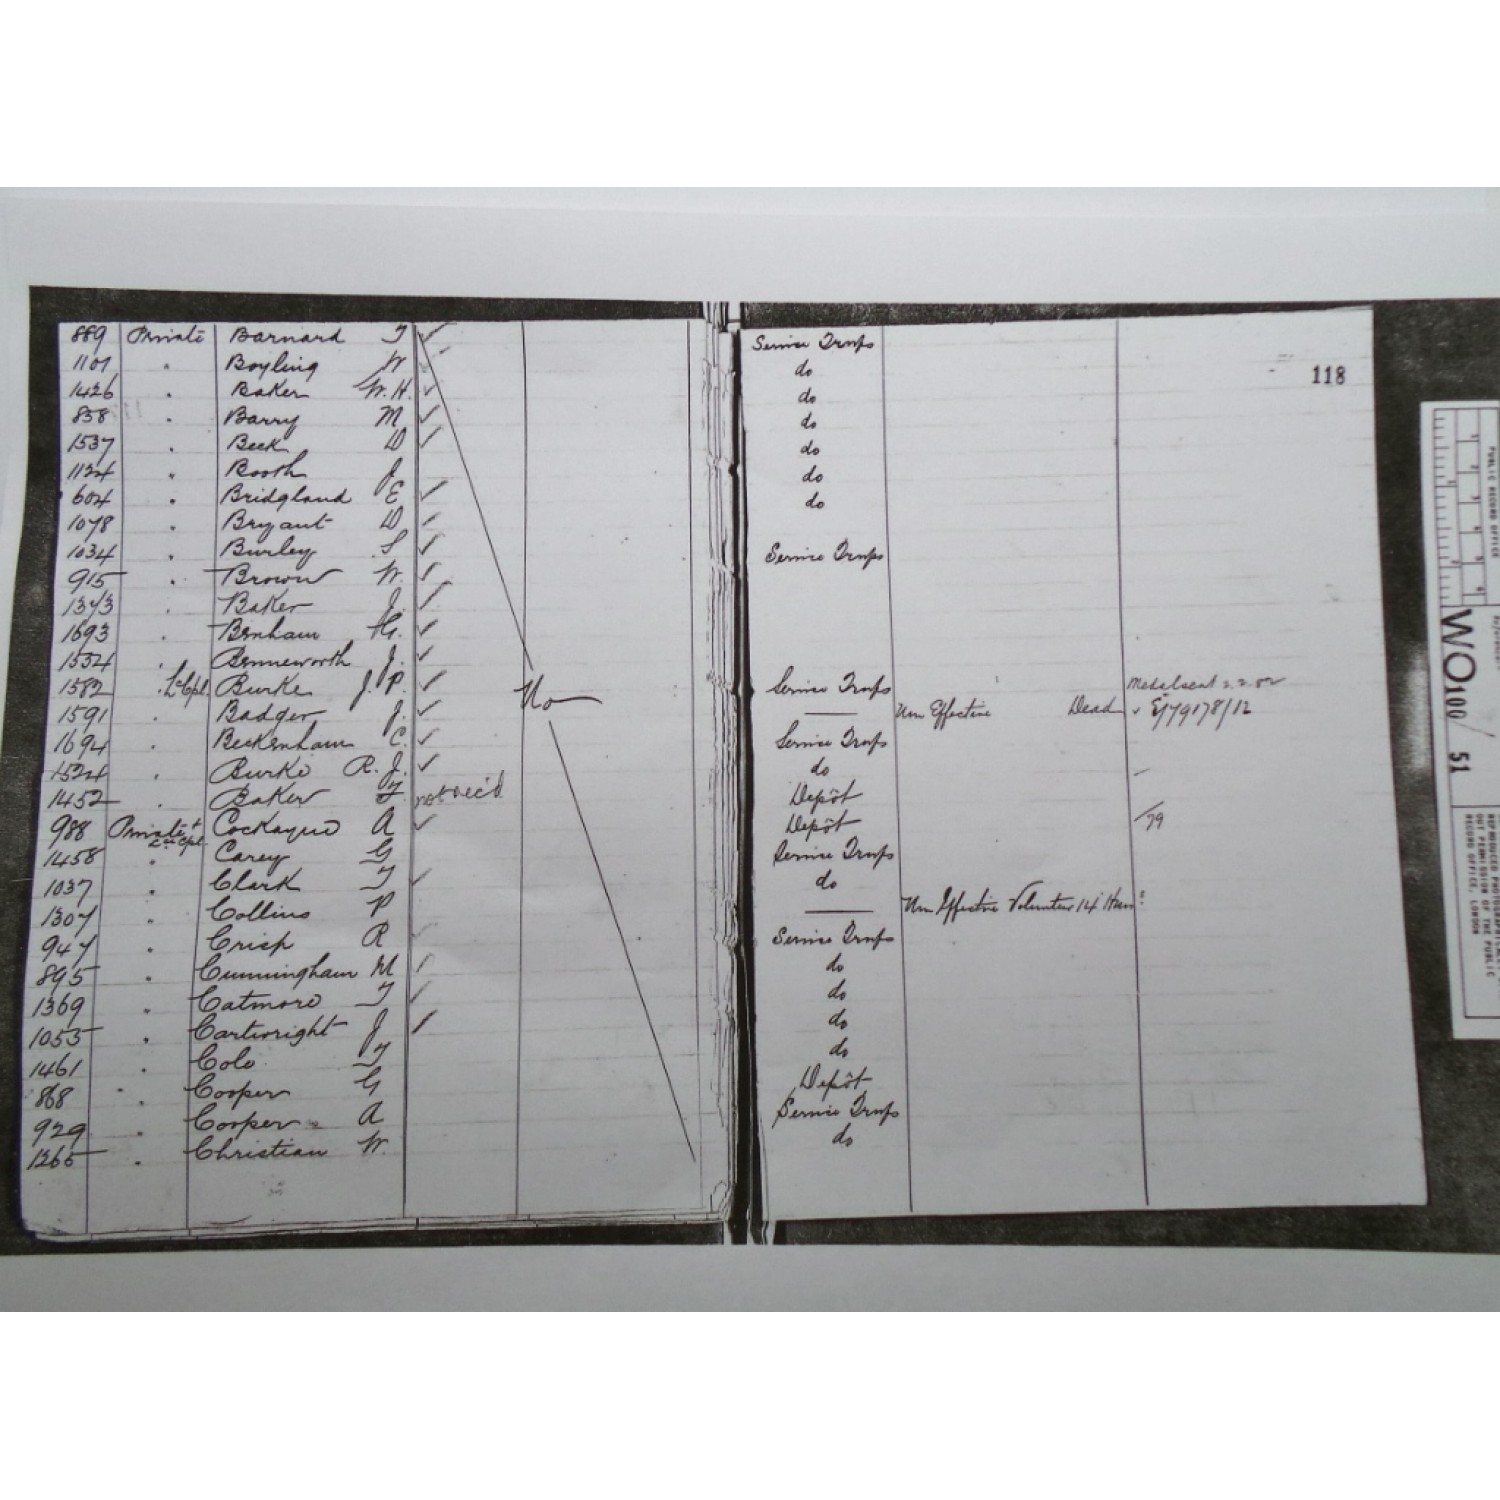 889 Private Barnard T ✓ Service Troops
1107 " Boyling W ✓ do
1426 " Baker W. H. ✓ do 118
858 " Barry M ✓ do
1537 " Beck D ✓ do
1124 " Booth J do
604 " Bridgland E ✓ do
1078 " Bryant D ✓
1034 " Burley S ✓ Service Troops
915 " Brown W. ✓
1373 " Baker J. ✓
1693 " Benham ✓
1534 " Benneworth J. ✓
1582 " Lce Cpl. Burke J. P. ✓ No Service Troops Medal sent 2.2.82
1591 " Badger J. ✓ —— Non Effective Dead ✓
1694 " Beckenham C. ✓ Service Troops
1524 " Burke R. J. ✓ do
1452 " Baker T not rec'd Depôt
988 Private & Lce Cpl. Cockayne A ✓ Depôt /79
1458 " Carey G Service Troops
1037 " Clark T ✓ do
1307 " Collins P —— Non Effective Volunteer 14th Hussrs
947 " Crisp R ✓ Service Troops
895 " Cunningham M ✓ do
1369 " Catmore T ✓ do
1055 " Cartwright J ✓ do
1461 " Cole T do
868 " Cooper G Depôt
929 " Cooper A Service Troops
1265 " Christian W. do
PUBLIC RECORD OFFICE
Reference:-
WO 100/51
REPRODUCED PHOTOGRAPHICALLY
OUT PERMISSION OF THE PUBLIC
RECORD OFFICE, LONDON